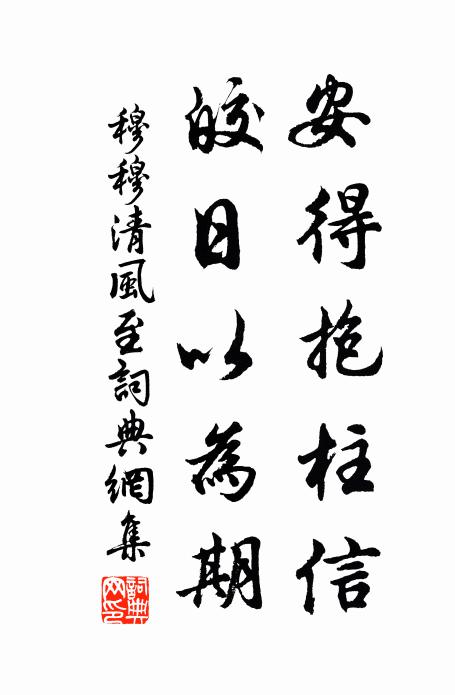 安得抱柱信
皎日以為期
穆穆清風至詞典網集
詞典網印